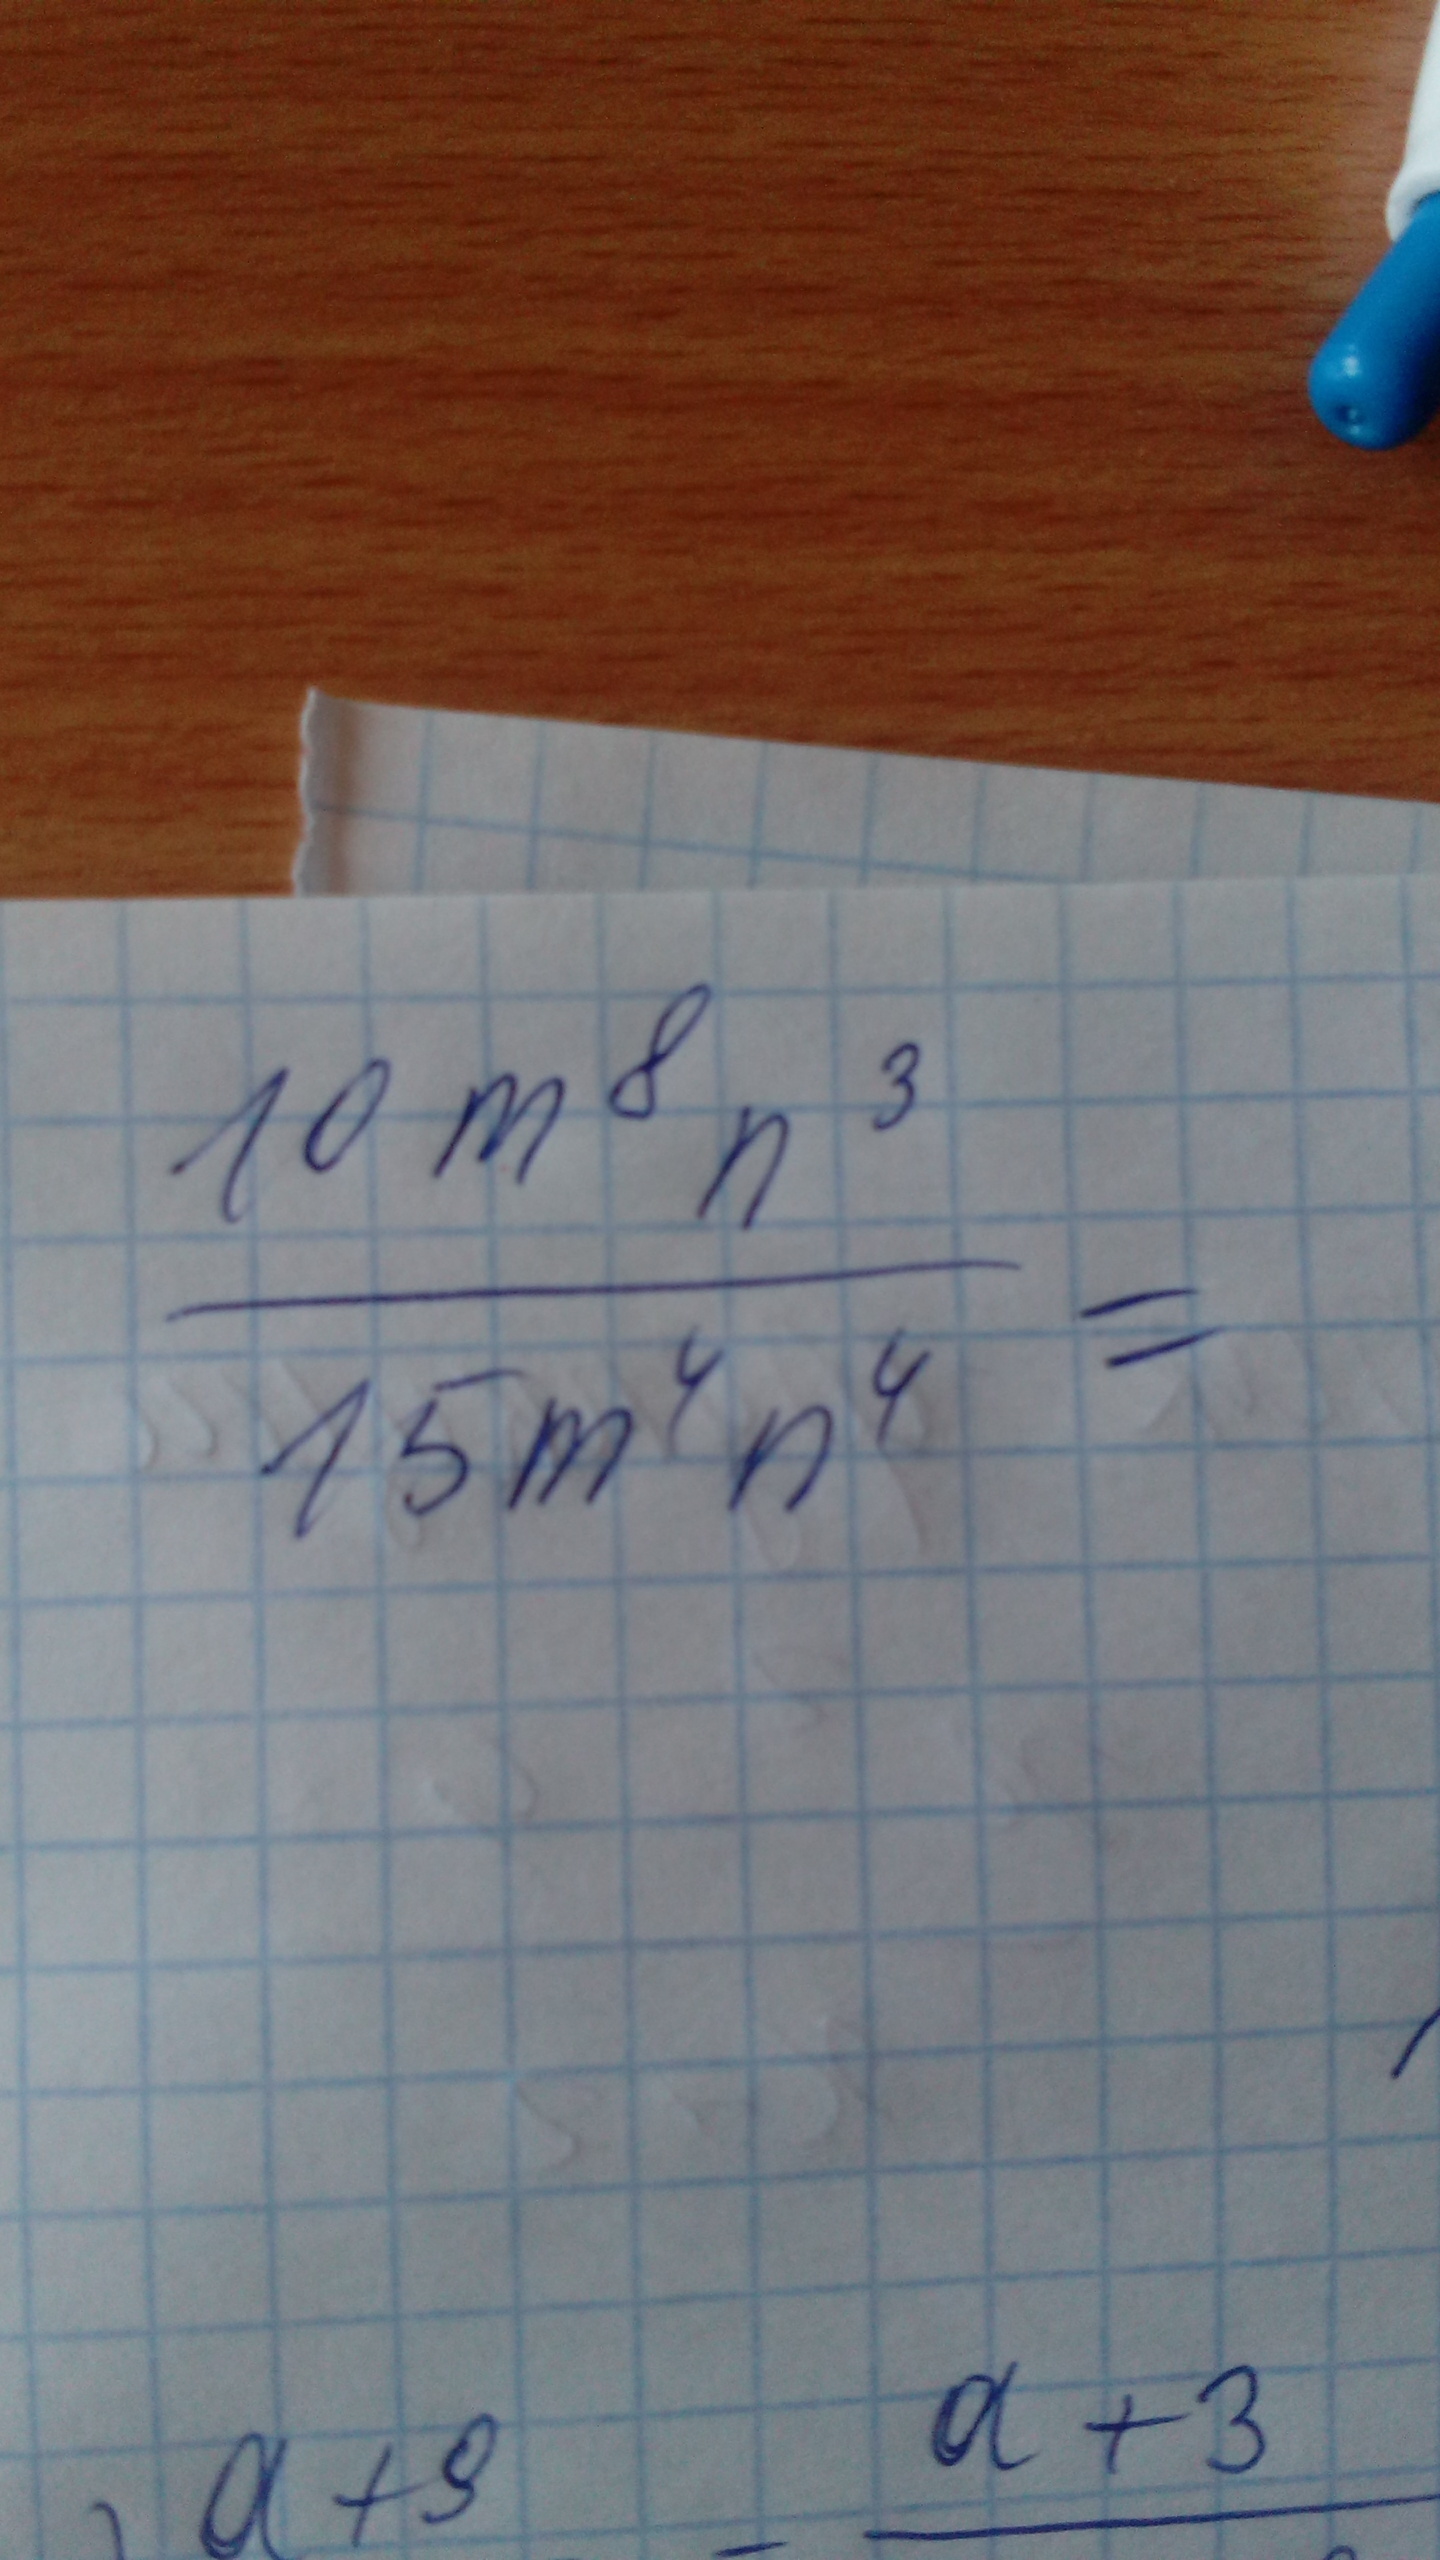 10 m⁸ n³
15 m⁴ n⁴ =
a + 3
a + 9 -